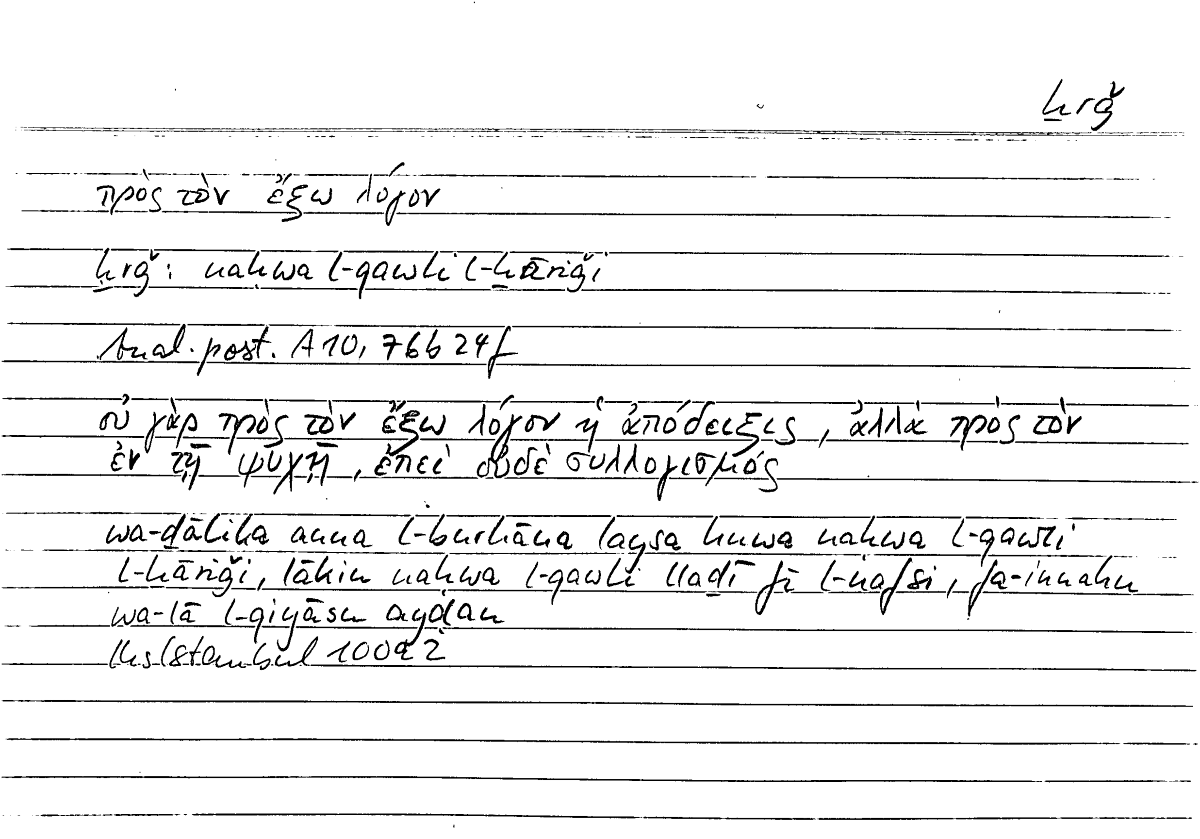 ḫrǧ
πρὸς τὸν ἔξω λόγον
ḫrǧ: naḥwa l-qawli l-ḫāriǧi
Anal. post. A 10, 76b 24f
οὐ γὰρ πρὸς τὸν ἔξω λόγον ἡ ἀπόδειξις, ἀλλὰ πρὸς τὸν
ἐν τῇ ψυχῇ, ἐπεὶ οὐδὲ συλλογισμός
wa-ḏālika anna l-burhāna laysa huwa naḥwa l-qawli
l-ḫāriǧi, lākin naḥwa l-qawli llaḏī fī l-nafsi, fa-innahu
wa-lā l-qiyāsu ayḍan
Hs Istanbul 100a 2